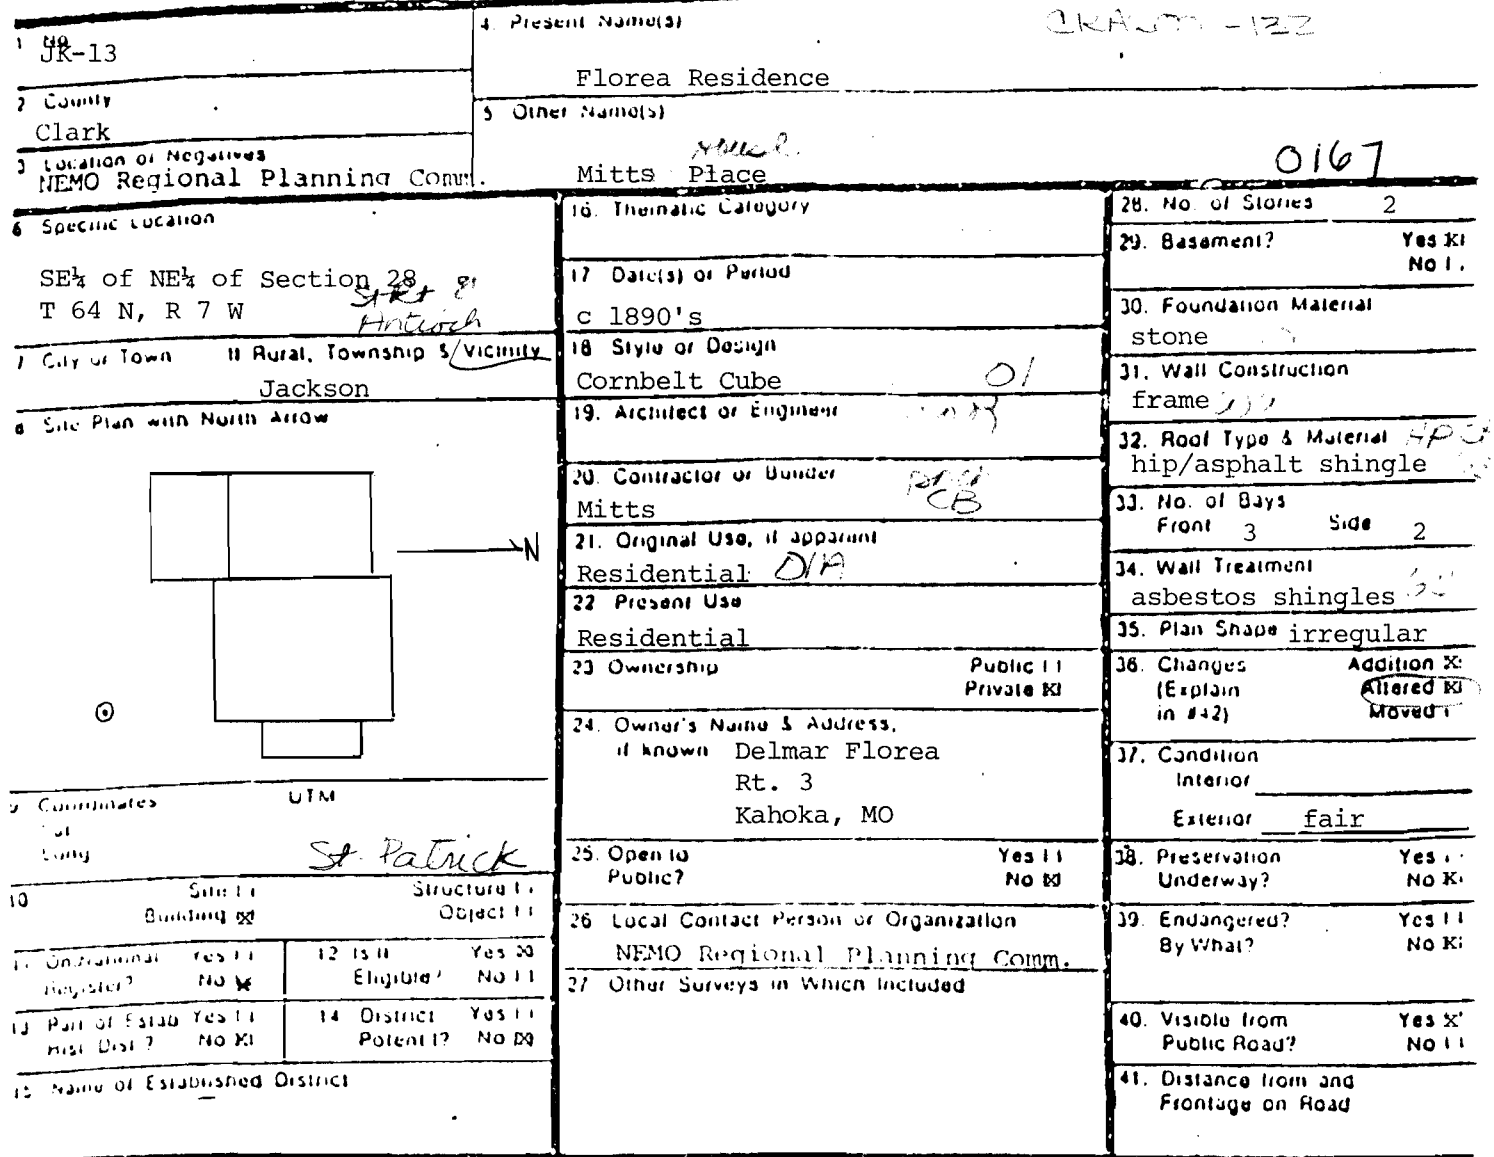 1 No.
JK-13
2 County
Clark
3 Location of Negatives
NEMO Regional Planning Comm.
4. Present Name(s)
Florea Residence
5 Other Name(s)
House
Mitts Place
0167
6 Specific Location
SE¼ of NE¼ of Section 28
T 64 N, R 7 W
Antioch
7 City or Town If Rural, Township & Vicinity
Jackson
8 Site Plan with North Arrow
N
9 Coordinates UTM
Lat
Long
St. Patrick
10 Site Structure
Building X Object
11 On National Yes
Register? No X
12 Is It Yes X
Eligible? No
13 Part of Estab Yes
Hist Dist? No X
14 District Yes
Potent'l? No X
15 Name of Established District
16. Thematic Category
17 Date(s) or Period
c 1890's
18 Style or Design
Cornbelt Cube 01
19. Architect or Engineer
20. Contractor or Builder
Mitts
CB
21. Original Use, if apparent
Residential 01A
22 Present Use
Residential
23 Ownership Public
Private X
24. Owner's Name & Address,
if known Delmar Florea
Rt. 3
Kahoka, MO
25. Open to Yes
Public? No X
26 Local Contact Person or Organization
NEMO Regional Planning Comm.
27 Other Surveys in Which Included
28. No. of Stories 2
29. Basement? Yes X
No
30. Foundation Material
stone
31. Wall Construction
frame
32. Roof Type & Material HP
hip/asphalt shingle
33. No. of Bays
Front 3 Side 2
34. Wall Treatment
asbestos shingles
35. Plan Shape irregular
36. Changes Addition X
(Explain Altered X
in #42) Moved
37. Condition
Interior
Exterior fair
38. Preservation Yes
Underway? No X
39. Endangered? Yes
By What? No X
40. Visible from Yes X
Public Road? No
41. Distance from and
Frontage on Road